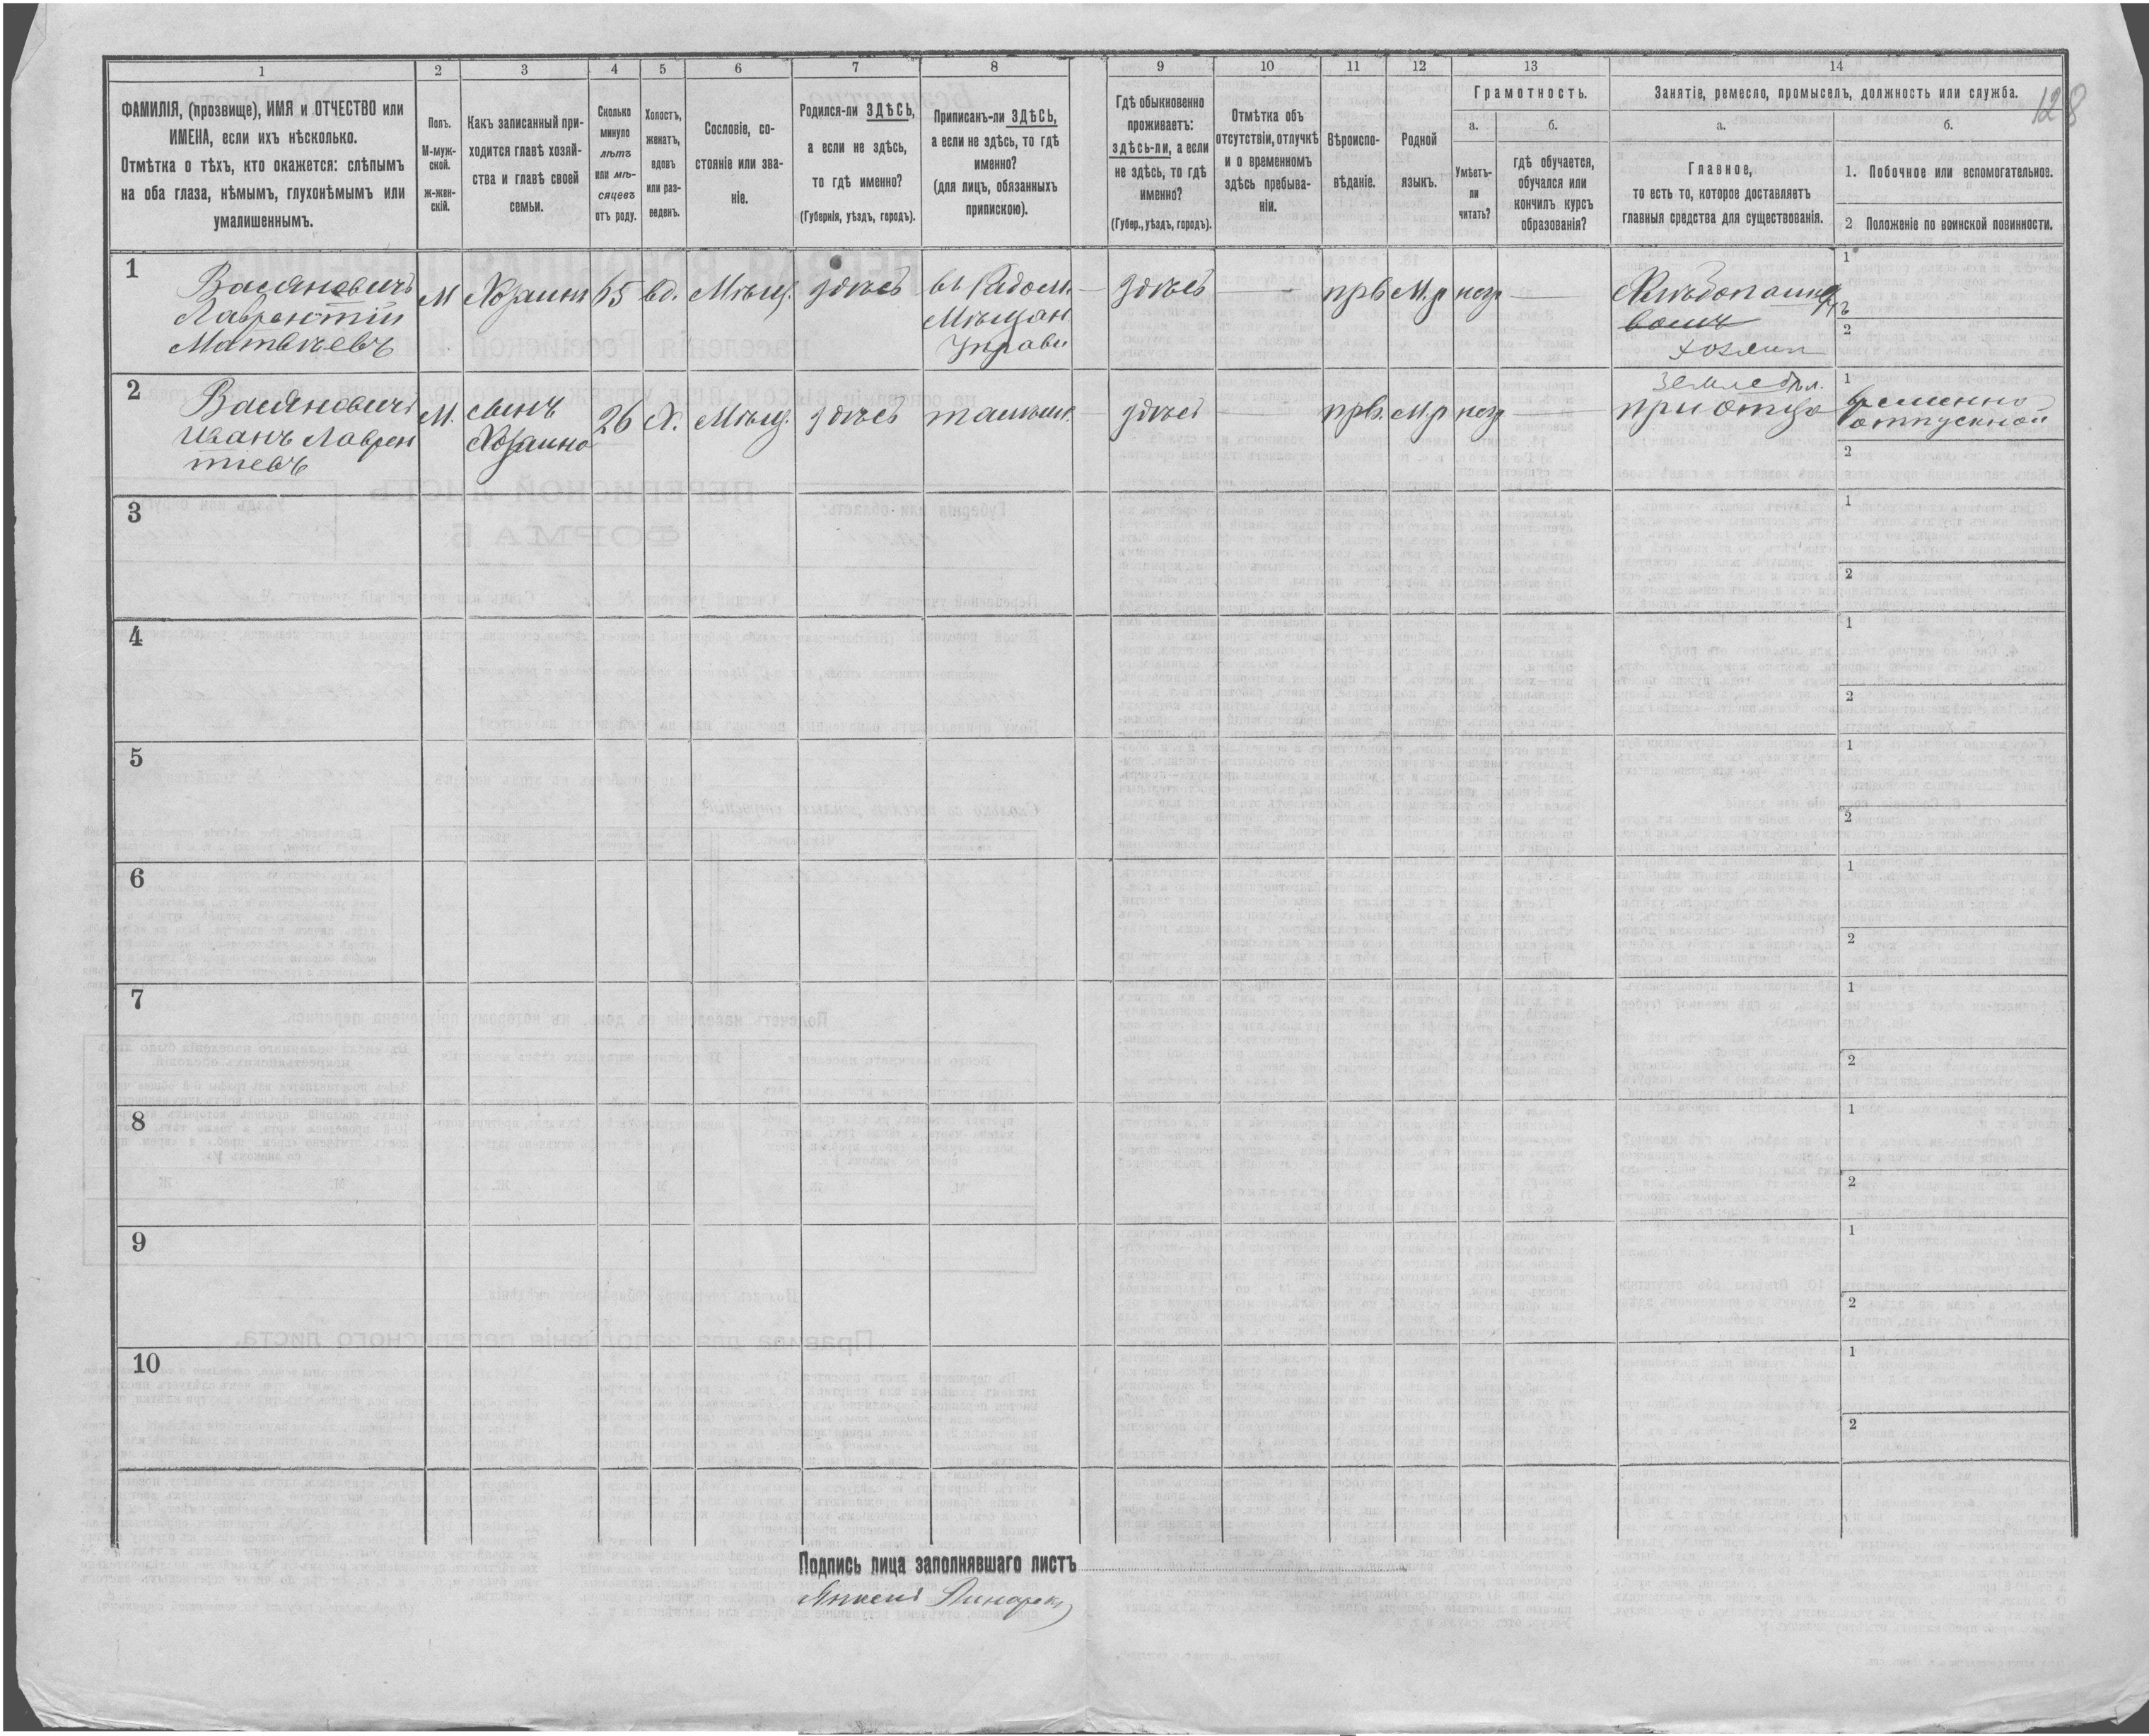 128
1
2
3
4
5
6
7
8
9
10
11
12
13
14
ФАМИЛІЯ, (прозвище), ИМЯ и ОТЧЕСТВО или
ИМЕНА, если ихъ нѣсколько.
Отмѣтка о тѣхъ, кто окажется: слѣпымъ
на оба глаза, нѣмымъ, глухонѣмымъ или
умалишеннымъ.
Полъ.
М-муж-
ской.
ж-жен-
скій.
Какъ записанный при-
ходится главѣ хозяй-
ства и главѣ своей
семьи.
Сколько
минуло
лѣтъ
или мѣ-
сяцевъ
отъ роду.
Холостъ,
женатъ,
вдовъ
или раз-
веденъ.
Сословіе, со-
стояніе или зва-
ніе.
Родился-ли ЗДѢСЬ,
а если не здѣсь,
то гдѣ именно?
(Губернія, уѣздъ, городъ).
Приписанъ-ли ЗДѢСЬ,
а если не здѣсь, то гдѣ
именно?
(для лицъ, обязанныхъ
припискою).
Гдѣ обыкновенно
проживаетъ:
здѣсь-ли, а если
не здѣсь, то гдѣ
именно?
(Губер., уѣздъ, городъ).
Отмѣтка объ
отсутствіи, отлучкѣ
и о временномъ
здѣсь пребыва-
ніи.
Вѣроиспо-
вѣданіе.
Родной
языкъ.
Грамотность.
а.
Умѣетъ-
ли
читать?
б.
гдѣ обучается,
обучался или
кончилъ курсъ
образованія?
Занятіе, ремесло, промыселъ, должность или служба.
а.
Главное,
то есть то, которое доставляетъ
главныя средства для существованія.
б.
1. Побочное или вспомогательное.
2 Положеніе по воинской повинности.
1
Васяновичъ
Лаврентій
Матвѣевъ
М
Хозяинъ
65
вд.
Мѣщ.
здѣсь
въ Радом.
Мѣщан
Управѣ
здѣсь
прв
М.р
негр
Хлѣбопашец
хозяин
1
2
2
Васяновичъ
Иванъ Лаврен
тіевъ
М.
сынъ
Хозяина
26
Х.
Мѣщ.
здѣсь
тамже
здѣсь
прв.
М.р
негр
земледѣл.
при отцѣ
1
временно
отпускной
2
3
1
2
4
1
2
5
1
2
6
1
2
7
1
2
8
1
2
9
1
2
10
1
2
Подпись лица заполнявшаго листъ